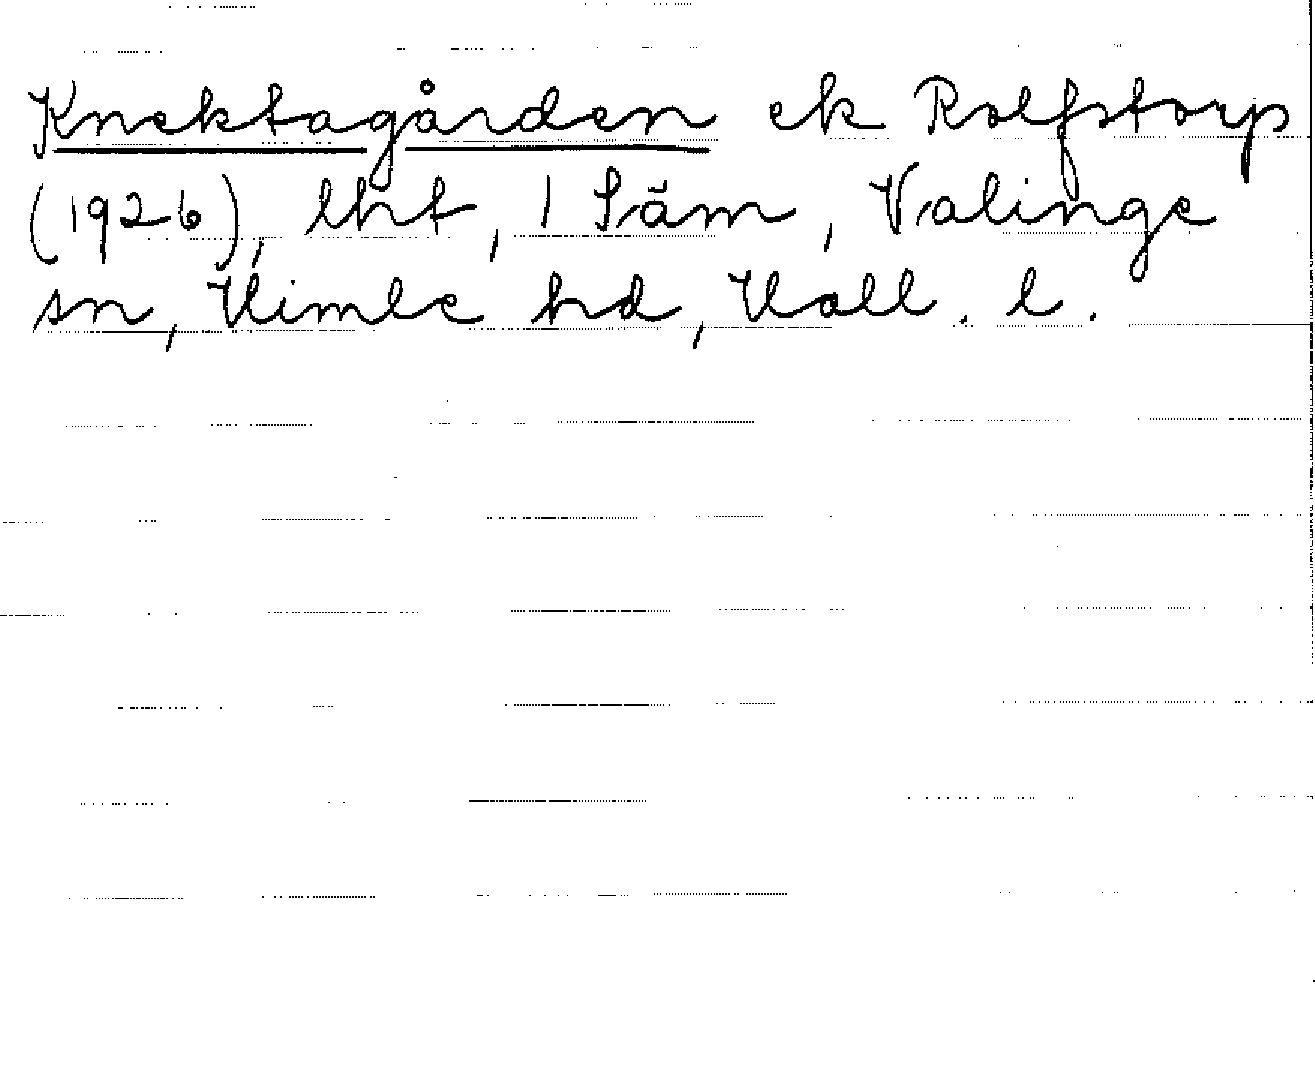 Knektagården ek Rolfstorp
(1926), lht, 1 Säm, Valinge
sn, Himle hd, Hall. l.